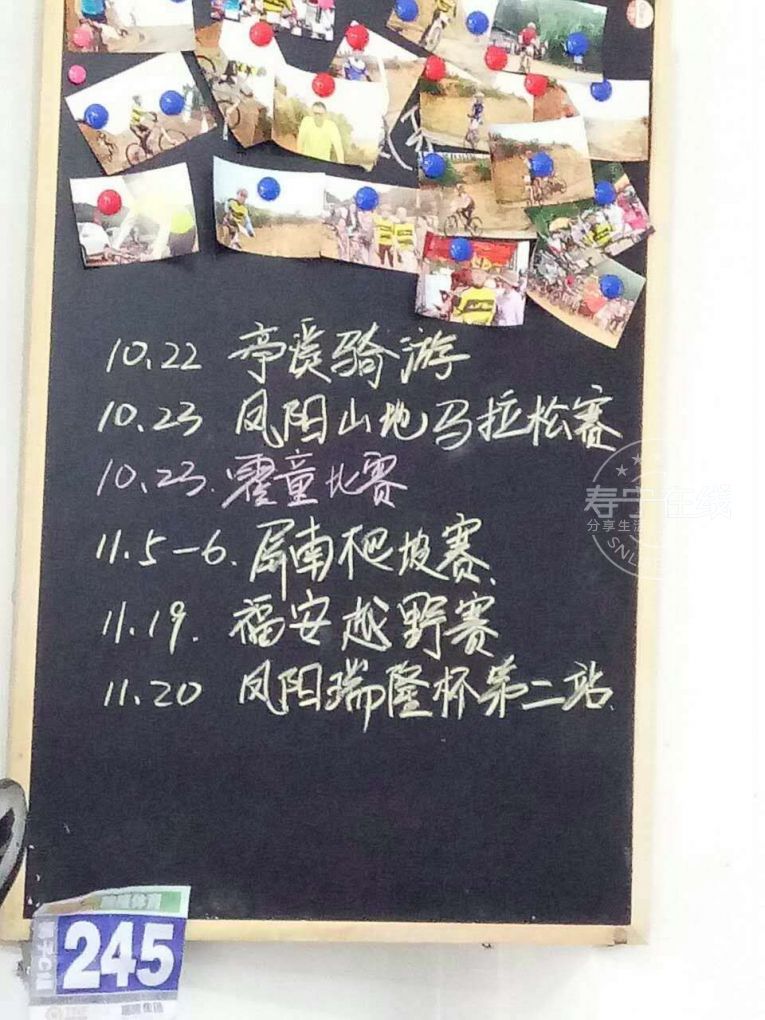 10.22 亭溪骑游
10.23 凤阳山地马拉松赛
10.23.霍童比赛
11.5-6.屏南爬坡赛
11.19. 福安越野赛
11.20 凤阳瑞隆杯第二站
寿宁在线
分享生活
245